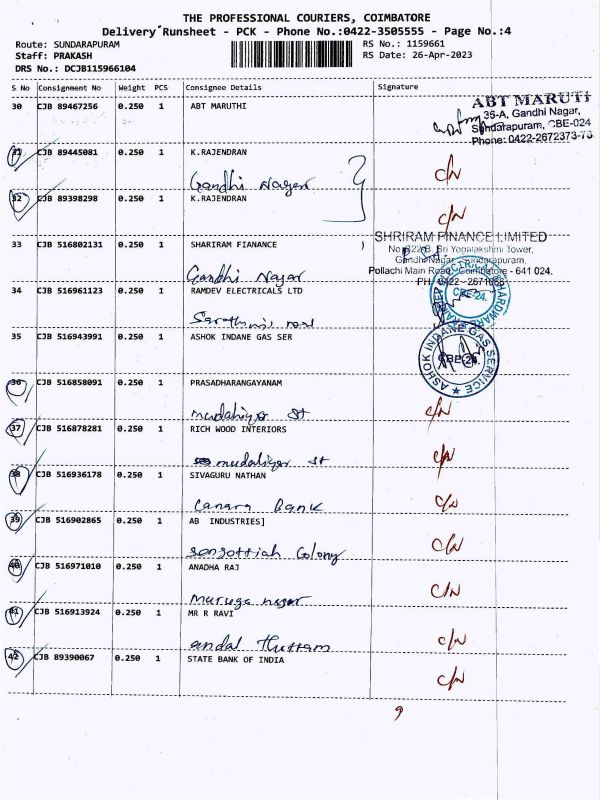 THE PROFESSIONAL COURIERS, COIMBATORE
Delivery Runsheet - PCK - Phone No.:0422-3505555 - Page No.:4
Route: SUNDARAPURAM
Staff: PRAKASH
DRS No.: DCJB115966104
RS No.: 1159661
RS Date: 26-Apr-2023
S No Consignment No Weight PCS Consignee Details Signature
30 CJB 89467256 0.250 1 ABT MARUTHI
ABT MARUTI
36-A, Gandhi Nagar,
Sundarapuram, CBE-024
Phone: 0422-2672373-76
31 CJB 89445081 0.250 1 K.RAJENDRAN
Gandhi Nagar C/N
32 CJB 89398298 0.250 1 K.RAJENDRAN
C/N
33 CJB 516802131 0.250 1 SHARIRAM FIANANCE )
SHRIRAM FINANCE LIMITED
Sri Yogalakshmi Tower,
Gandhi Nagar, Sundarapuram,
Pollachi Main Road, Coimbatore - 641 024.
PH: 0422 - 2671666
Gandhi Nagar
34 CJB 516961123 0.250 1 RAMDEV ELECTRICALS LTD
CBE-24.
35 CJB 516943991 0.250 1 ASHOK INDANE GAS SER
ASHOK INDANE GAS SERVICE
CBE-24.
36 CJB 516858091 0.250 1 PRASADHARANGAYANAM
mudaliyar St C/N
37 CJB 516878281 0.250 1 RICH WOOD INTERIORS
mudaliyar St C/N
38 CJB 516936178 0.250 1 SIVAGURU NATHAN
Canara Bank C/N
39 CJB 516902865 0.250 1 AB INDUSTRIES]
Colony C/N
40 CJB 516971010 0.250 1 ANADHA RAJ
muruga nagar C/N
41 CJB 516913924 0.250 1 MR R RAVI
andal C/N
42 CJB 89390067 0.250 1 STATE BANK OF INDIA
C/N
9